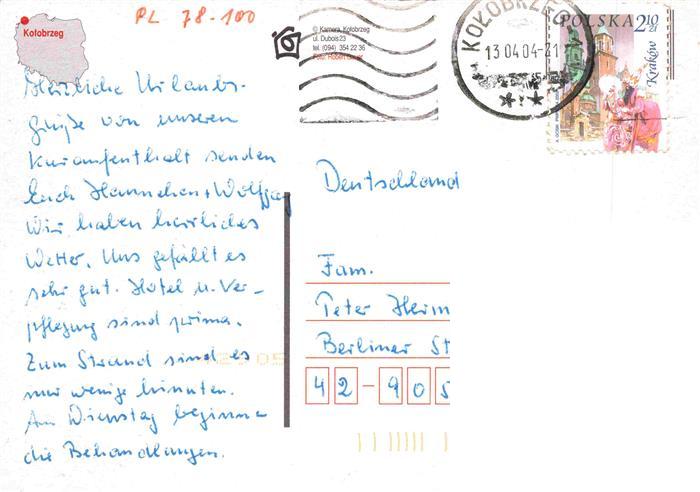 PL 78-100
Kołobrzeg
© Kamera, Kołobrzeg
ul. Dubois 23
tel. (094) 354 22 36
KOŁOBRZEG
13.04.04-21
POLSKA 2,10 zł
Kraków
Herzliche Urlaubs-
grüße von unseren
Kuraufenthalt senden
Euch Hannchen + Wolfgang
Wir haben herrliches
Wetter. Uns gefällt es
sehr gut. Hotel u. Ver-
pflegung sind prima.
Zum Strand sind es
nur wenige Minuten.
Am Dienstag beginnen
die Behandlungen.
Deutschland
Fam.
Peter Heim
Berliner St
42-905